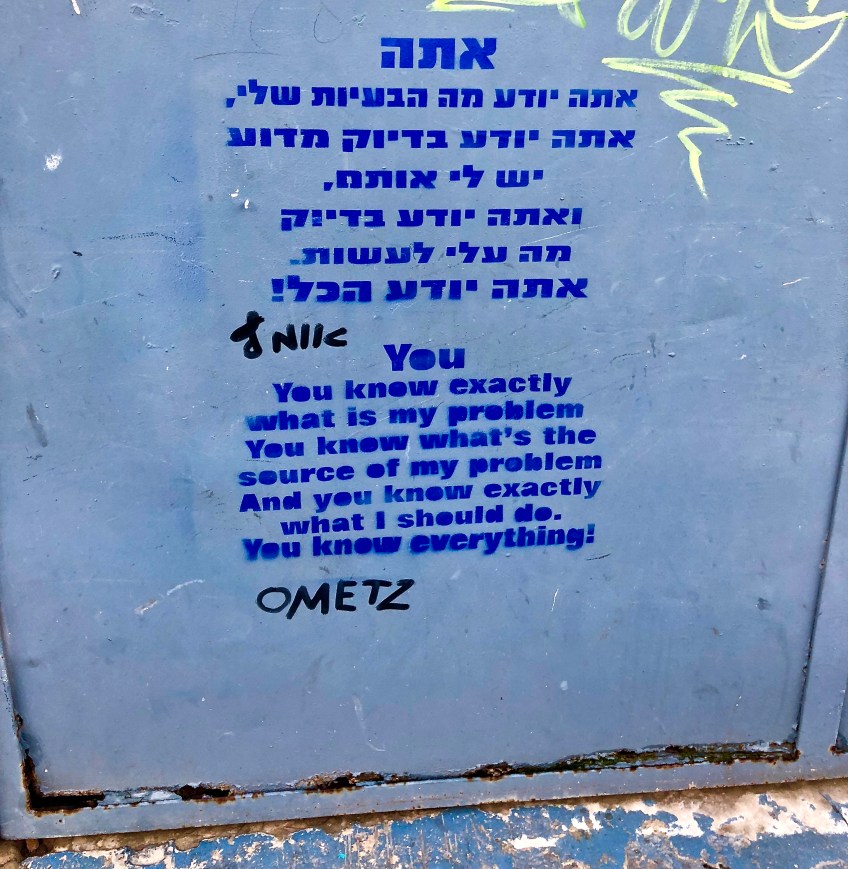 אתה
אתה יודע מה הבעיות שלי,
אתה יודע בדיוק מדוע
יש לי אותם,
ואתה יודע בדיוק
מה עלי לעשות.
אתה יודע הכל!
אומץ
You
You know exactly
what is my problem
You know what's the
source of my problem
And you know exactly
what I should do.
You know everything!
OMETZ